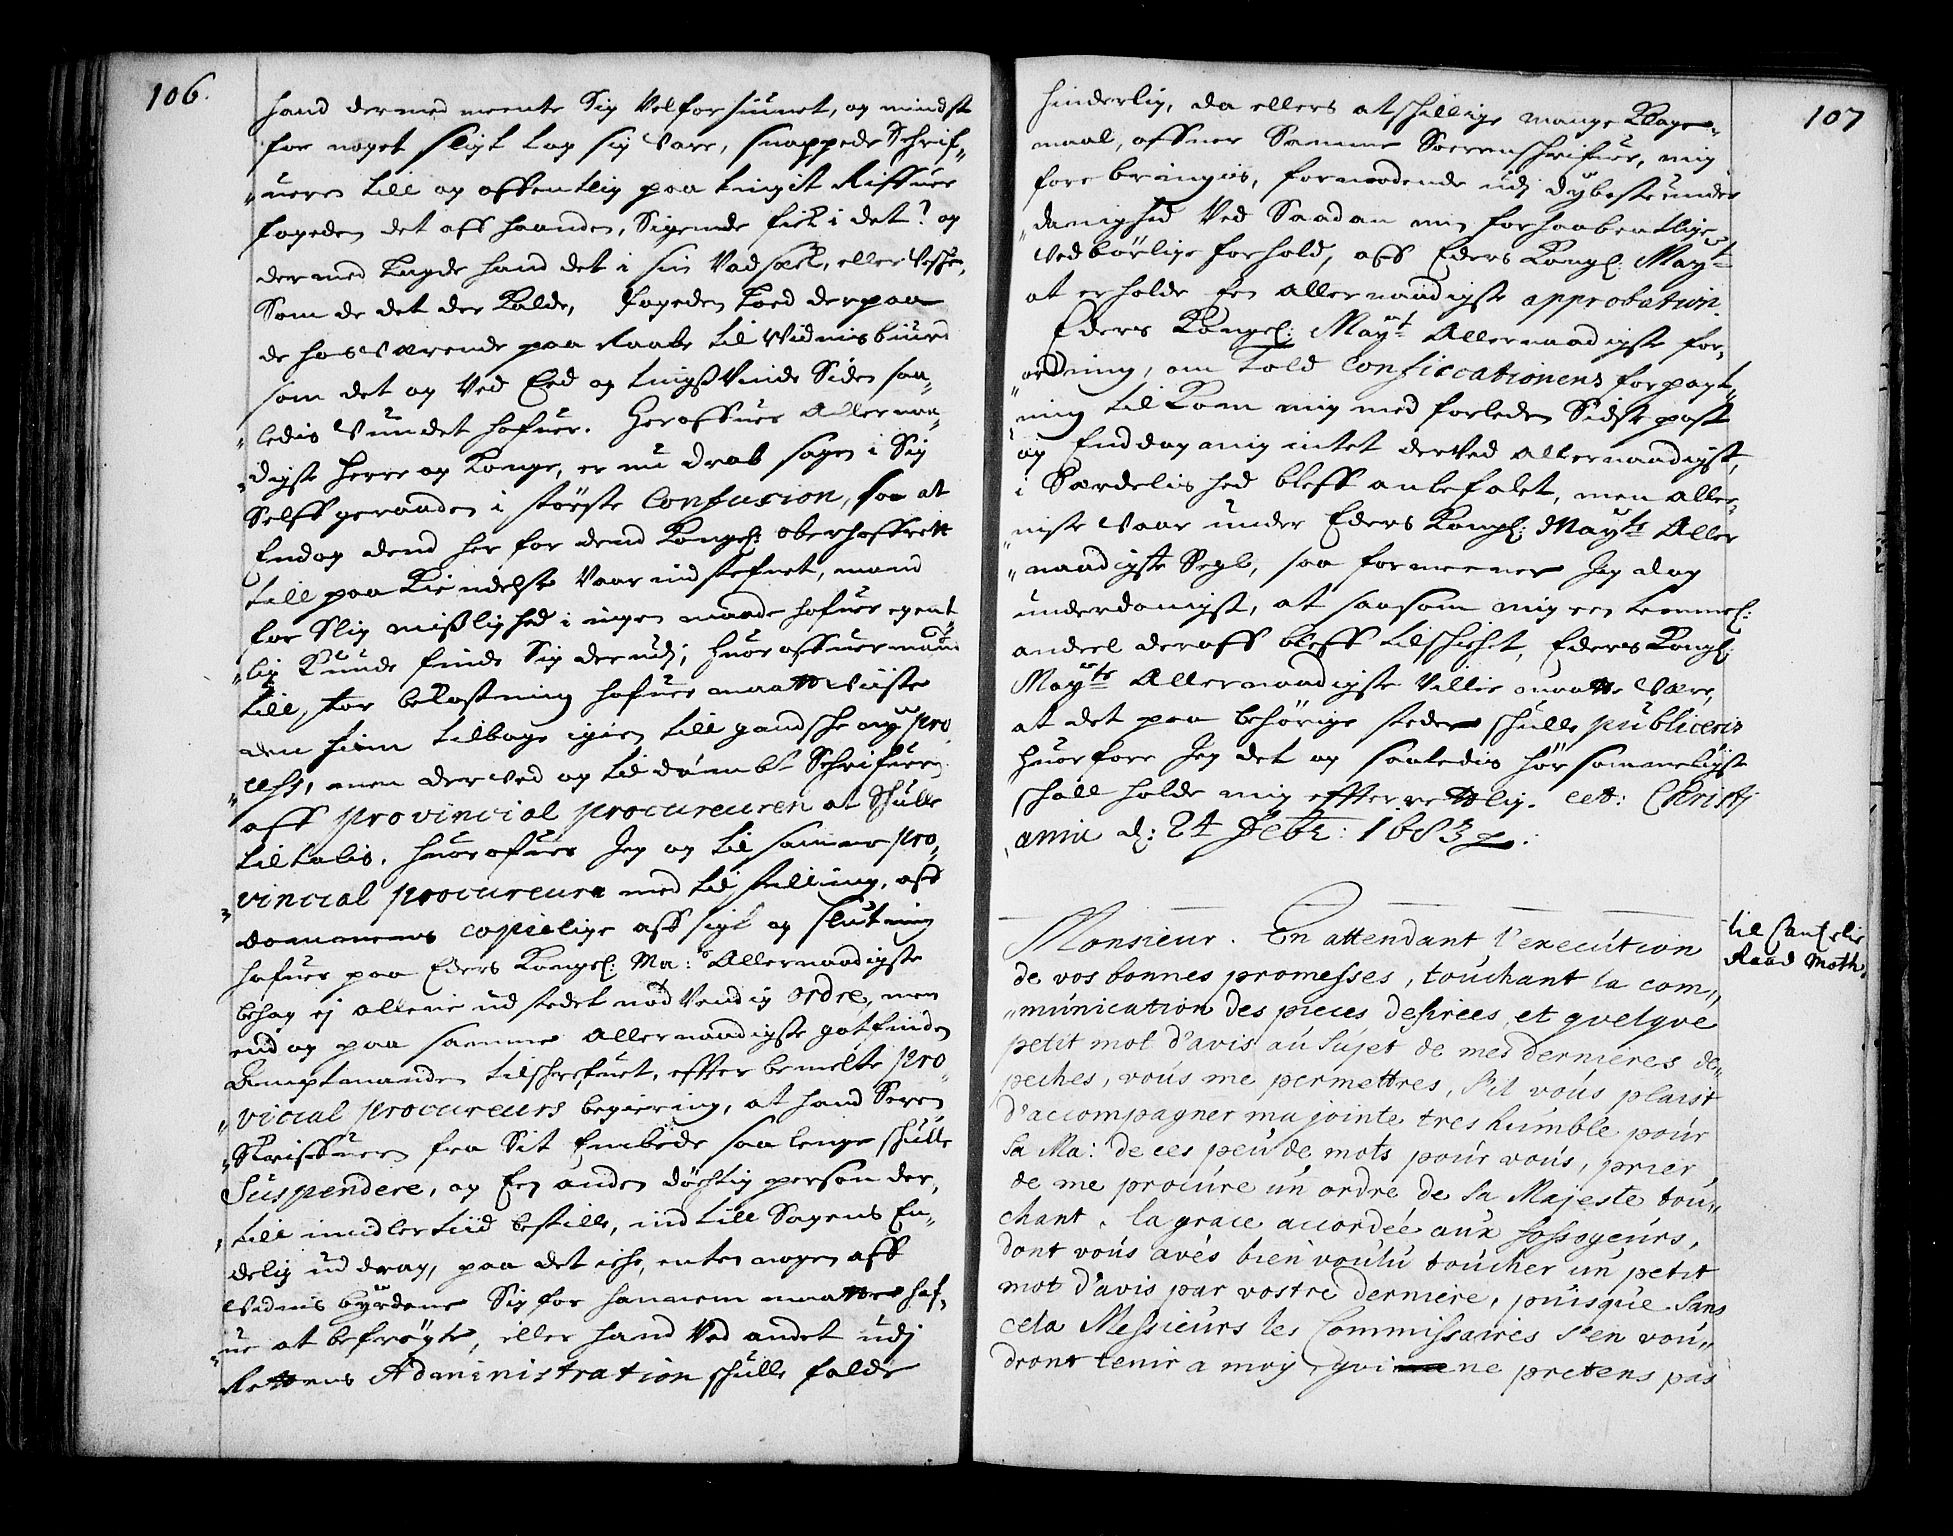 106.
hand dermed meente Sig Velforsiunet, og mindst
for noget sligt tog sig vare, snappede Schrif-
"ueren till og offentlig paa tingit Riffuer
fogeden det aff haanden, Sigende fick i det? og
dermed Lagde hand det i sin Vadsæck, eller Vesche,
Som de det der Kalde, fogeden Loed derpaa
de hosværende paa Raabe til Vidnisbiurd
som det og Ved Eed og tingsVinde Siden saa-
"ledis Vundet hafuer. Heroffuer Allernaa-
"digste Herre og Konge, er nu drab sagen i Sig
Selff geraaden i største Confusion, saa at
Endog dend her for dend Kongel: oberhoffrett
till paa Kiendelse Vaar indstefnet, mand
for Slig mißlighed i ingen maade hafuer egent-
"lig Kunde finde Sig derudj; huoroffuer mand
till, stor bekostning hafuer maatte Viiste
den hiem tilbage igien till gandsche nye pro-
"cess, men derved og tildømbt Schrifueren
aff provincial procureuren at Skulle
tiltalis. huorofuer Jeg og til samme pro-
"vincial procureure med tilstilling, aff
dommenens copielige aff sigt og slutning
hafuer paa Eders Kongel: Ma: Allernaadigste
behag ej allene udstedet nødVendig ordre, men
end og paa samme Allernaadigste gotfinden
Amptmanden tilschrefuet, effter bemelte pro-
"vicial procureurs begiering, at hand Soren
"Skriffueren fra Sit Embede saa lenge schulle
Suspendere, og Een anden døchtig person der-
"till imidlertiid bestille, indtill Sagens En-
delig uddrag, paa det iche, enten nogen aff
Vidnisbyrdene Sig for hannem maatte haf-
"ue at befrøgte, eller hand Ved andet udj
Rettens Administration schulle falde
107
hinderlig, da ellers atschillige mange Klage-
maal, offuer Samme Soerenschrifuer, mig
forebringis, formodende udj dybeste under
"danighed Ved Saadan min forhaabentlige
Vedbörlige forhold, aff Eders Kongl: Mayt
at erholde Een allernaadigste approbation.
Eders Kongel: Mayt Allernaadigste for-
"ordning, om told Confiscationens forpagt-
"ning tilkom mig med forleden Sidste post
og Enddog mig intet derVed Allernaadigst,
i Særdelished bleff anbefalet, men aller-
"niste Vaar under Eders Kongl: Mayts Aller
"naadigste Segl, saa formeener Jeg dog
underdanigst, at saasom mig een temmel:
andeel deraff bleff tilschicht, Eders Kongl:
Mayts Allernaadigste Villie maatte Være,
at det paa behörige steder schulle publiceris
huorfore Jeg det og saaledis hörsommeligst
schall holde mig effterrettlig. ect: Christi
aniæ d: 24 Febr: 1683
til Cancelie
Raad Moth.
Monsieur. En attendant l'execution
de vos bonnes promesses, touchant la com-
"munication des pieces desirées, et quelque
petit mot d'avis au sujet de mes dernieres de-
peches, vous me permettres, s'il vous plaist
d'accompagner ma jointe tres humble pour
sa Ma: de ces peu de mots pour vous, prier,
de me procure un ordre de sa Majeste tou-
chant. la grace accordée aux fossoyeurs,
dont vous avés bien voulu toucher un petit
mot d'avis par vostre derniere, puisque sans
cela Messieurs les Commissaires s'en vou-
dront tenir a moy, qui ne pretens pas